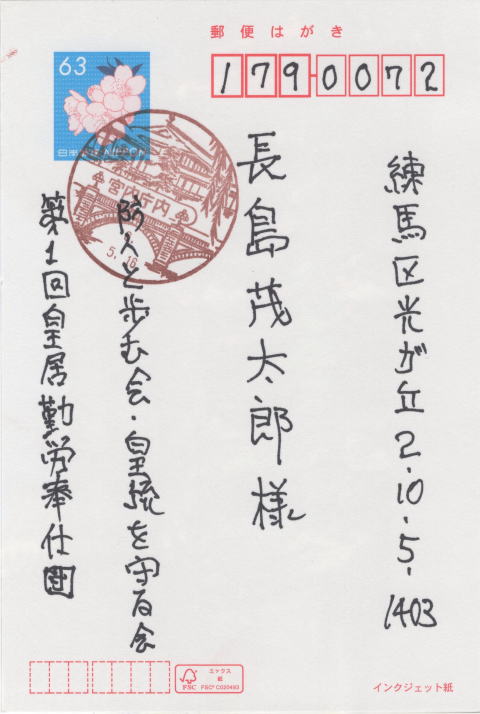 郵便はがき
179-0072
63
日本郵便 NIPPON
宮内庁内
5.16
練馬区光が丘2.10.5.1403
長島茂太郎様
防人と歩む会・皇統を守る会
第1回皇居勤労奉仕團
ミックス
紙
FSC
FSC® C020493
インクジェット紙